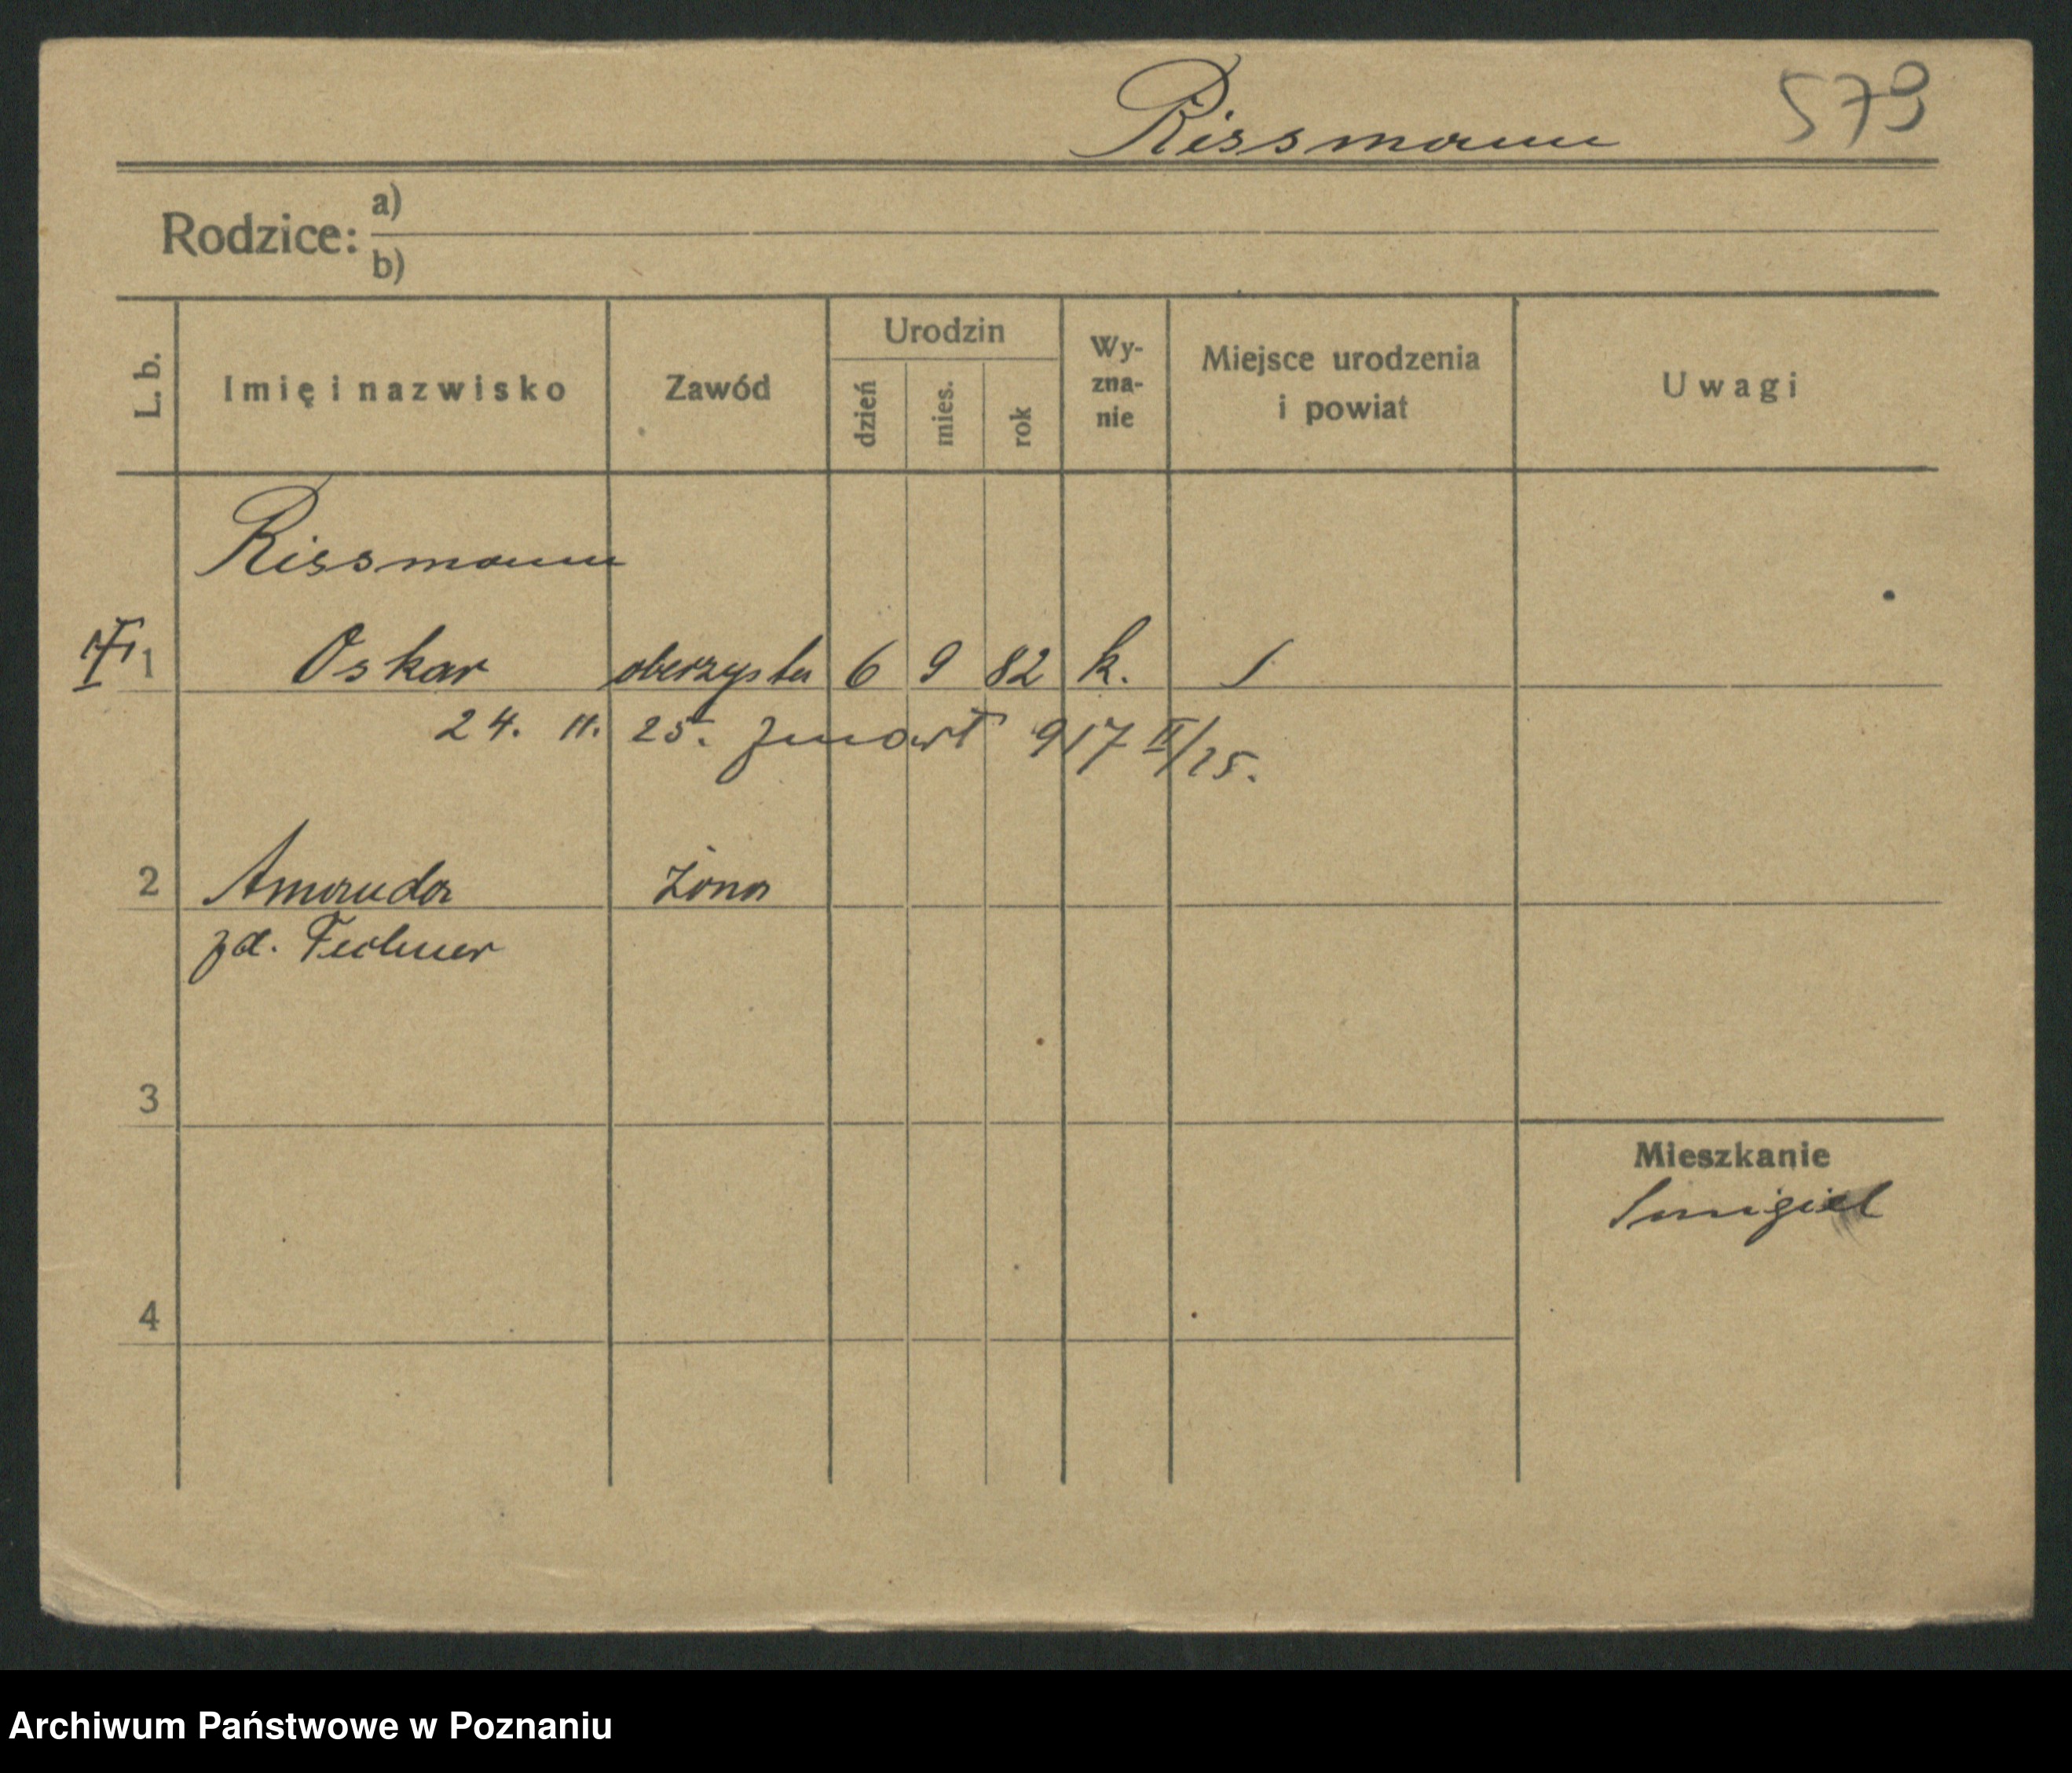 Rissmann 579
Rodzice: a)
b)
L. b. Imię i nazwisko Zawód Urodzin dzień mies. rok Wy-zna-nie Miejsce urodzenia i powiat Uwagi
Rissmann
1 Oskar oberzysta 6 9 82 k.
24. 11. 25. zmarł 917 II/25.
2 Amanda żona
zd. Fechner
3
Mieszkanie
Smigiel
4
Archiwum Państwowe w Poznaniu